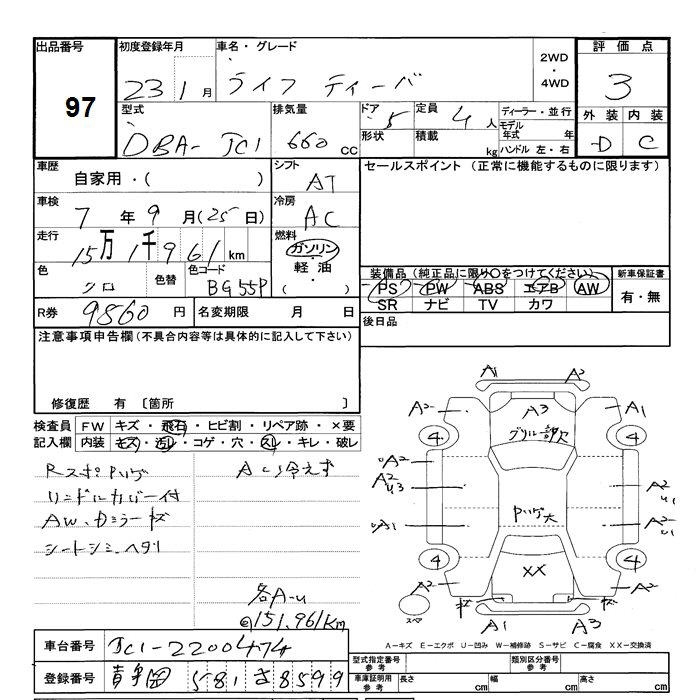 出品番号 97
初度登録年月 23 1月
車名・グレード ライフ ディーバ
2WD ・ 4WD
評価点 3
外装 D 内装 C
型式 DBA-JC1
排気量 660 cc
ドア 5 形状
定員 4人 積載 kg
ディーラー・並行
モデル年式 年
ハンドル 左・右
車歴 自家用・( )
シフト AT
セールスポイント (正常に機能するものに限ります)
車検 7年 9月(25日)
冷房 AC
走行 15万1千961km
燃料 ガソリン・軽油・( )
色 クロ 色替 色コード BG55P
装備品(純正品に限り○をつけてください)
PS PW ABS エアB AW
SR ナビ TV カワ
新車保証書 有・無
R券 9860円 名変期限 月 日
後日品
注意事項申告欄(不具合内容等は具体的に記入して下さい)
修復歴 有 〔箇所 〕
検査員記入欄 FW キズ・飛石・ヒビ割・リペア跡・×要
内装 キズ・汚レ・コゲ・穴・スレ・キレ・破レ
Rスポ Pハゲ
リンドルカバー付
AW、Dミラーキズ
シートシミ、ヘタリ
ACり冷えず
各A-u
◎151,961Km
A1 A2
A2 A3 A2
グリル一部欠
4 4
A2 A2
A2 u3 u1
Pハゲ大
A1 A2 u1
4 4
XX
A2 A2
キズ キズ
スペア
A1 A3
A-キズ E-エクボ U-凹み W-補修跡 S-サビ C-腐食 XX-交換済
車台番号 JC1-2200474
登録番号 581 さ 8599
型式指定番号 参考 類別区分番号 参考
車庫証明用 参考 長さ cm 幅 cm 高さ cm